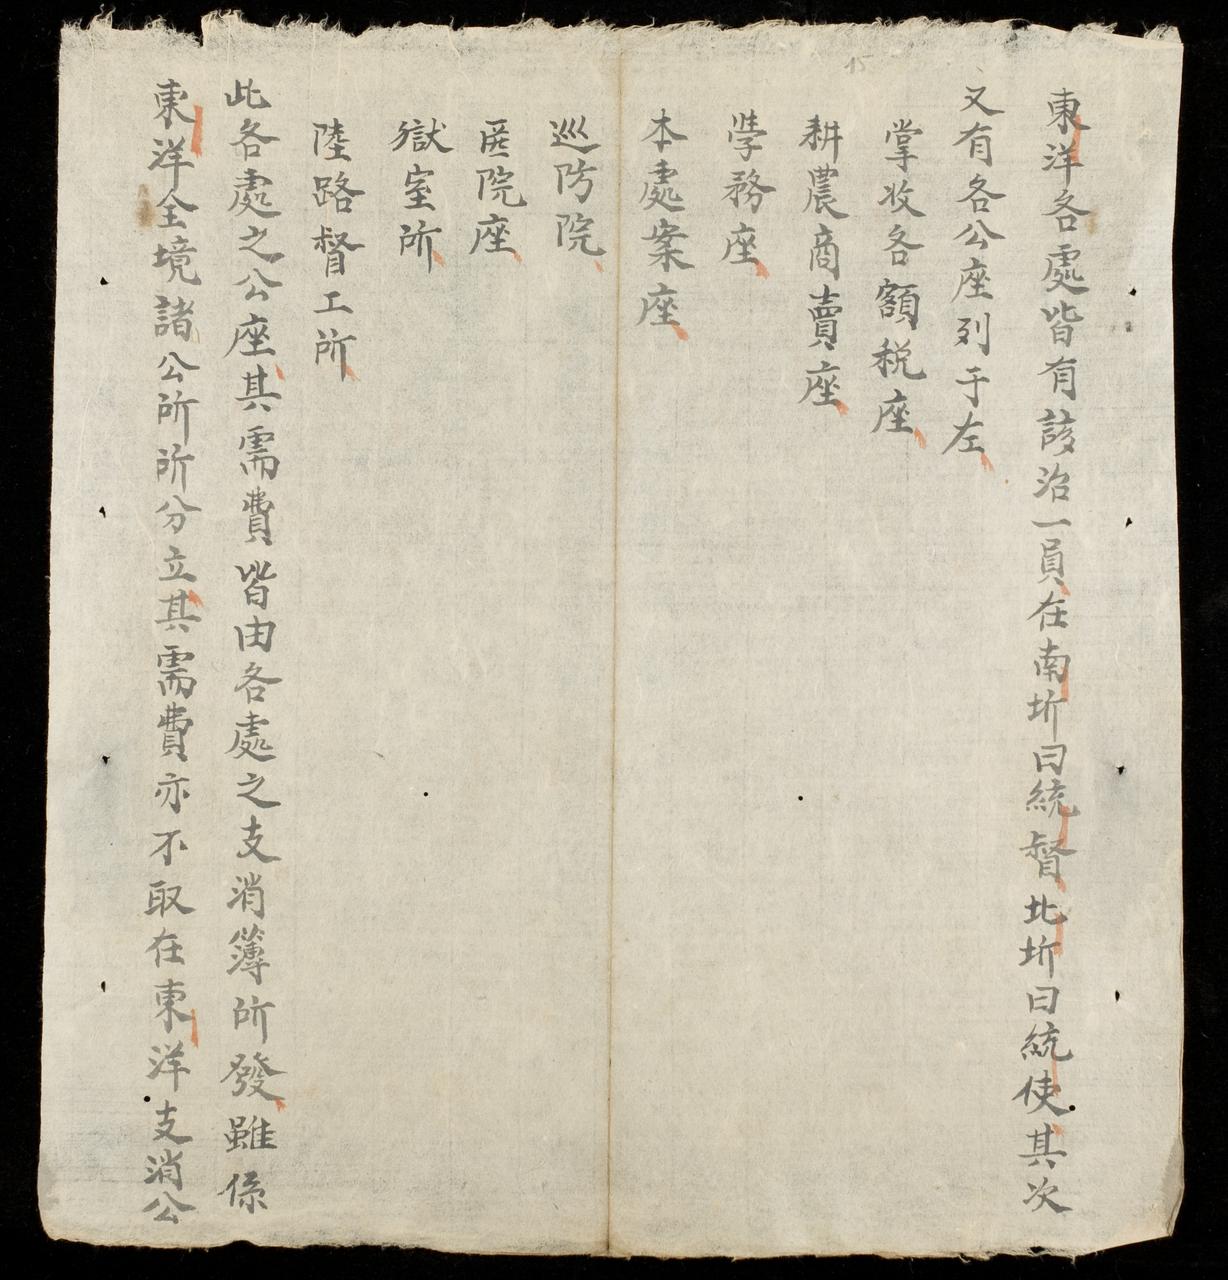 15
東洋各處皆有該治一員在南圻曰統督北圻曰統使其次
又有各公座列于左
掌收各額税座
耕農商賣座
學務座
本處案座
巡防院
医院座
獄室所
陸路督工所
此各處之公座其需費皆由各處之支消簿所發雖係
東洋全境諸公所所分立其需費亦不取在東洋支消公